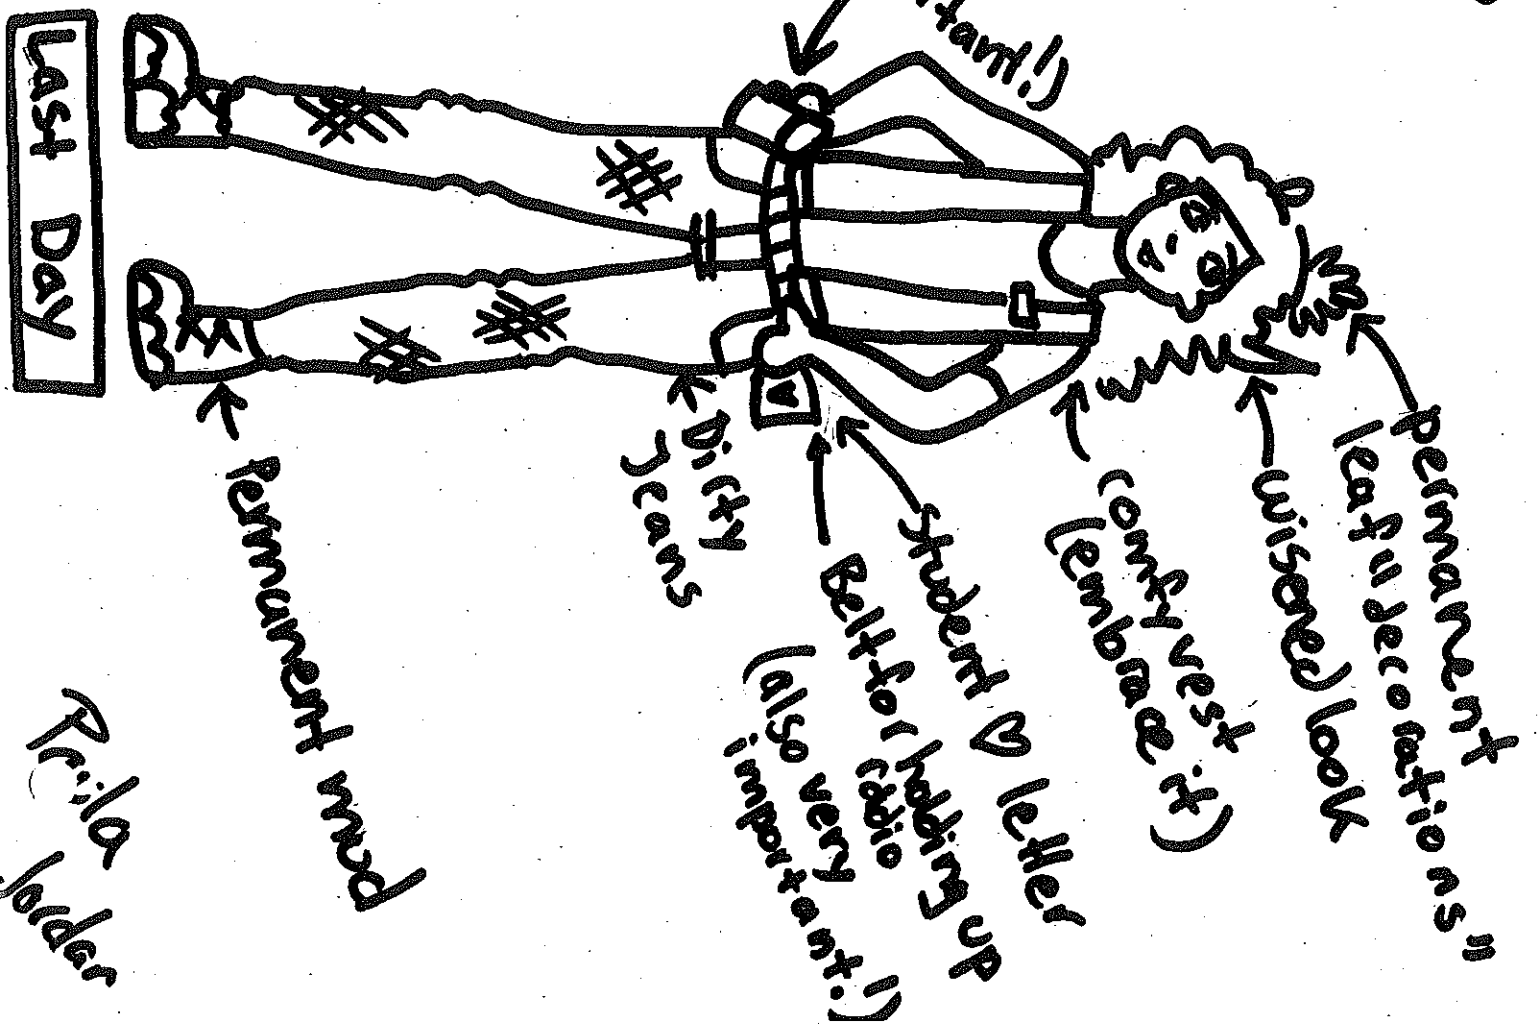 permanent
leaf "decorations"
wisened look
comfy vest
(embrace it)
tant!)
student ♡ letter
Belt for holding up
radio
(also very
important!)
Dirty
Jeans
Permanent mud
Last Day
Jordan